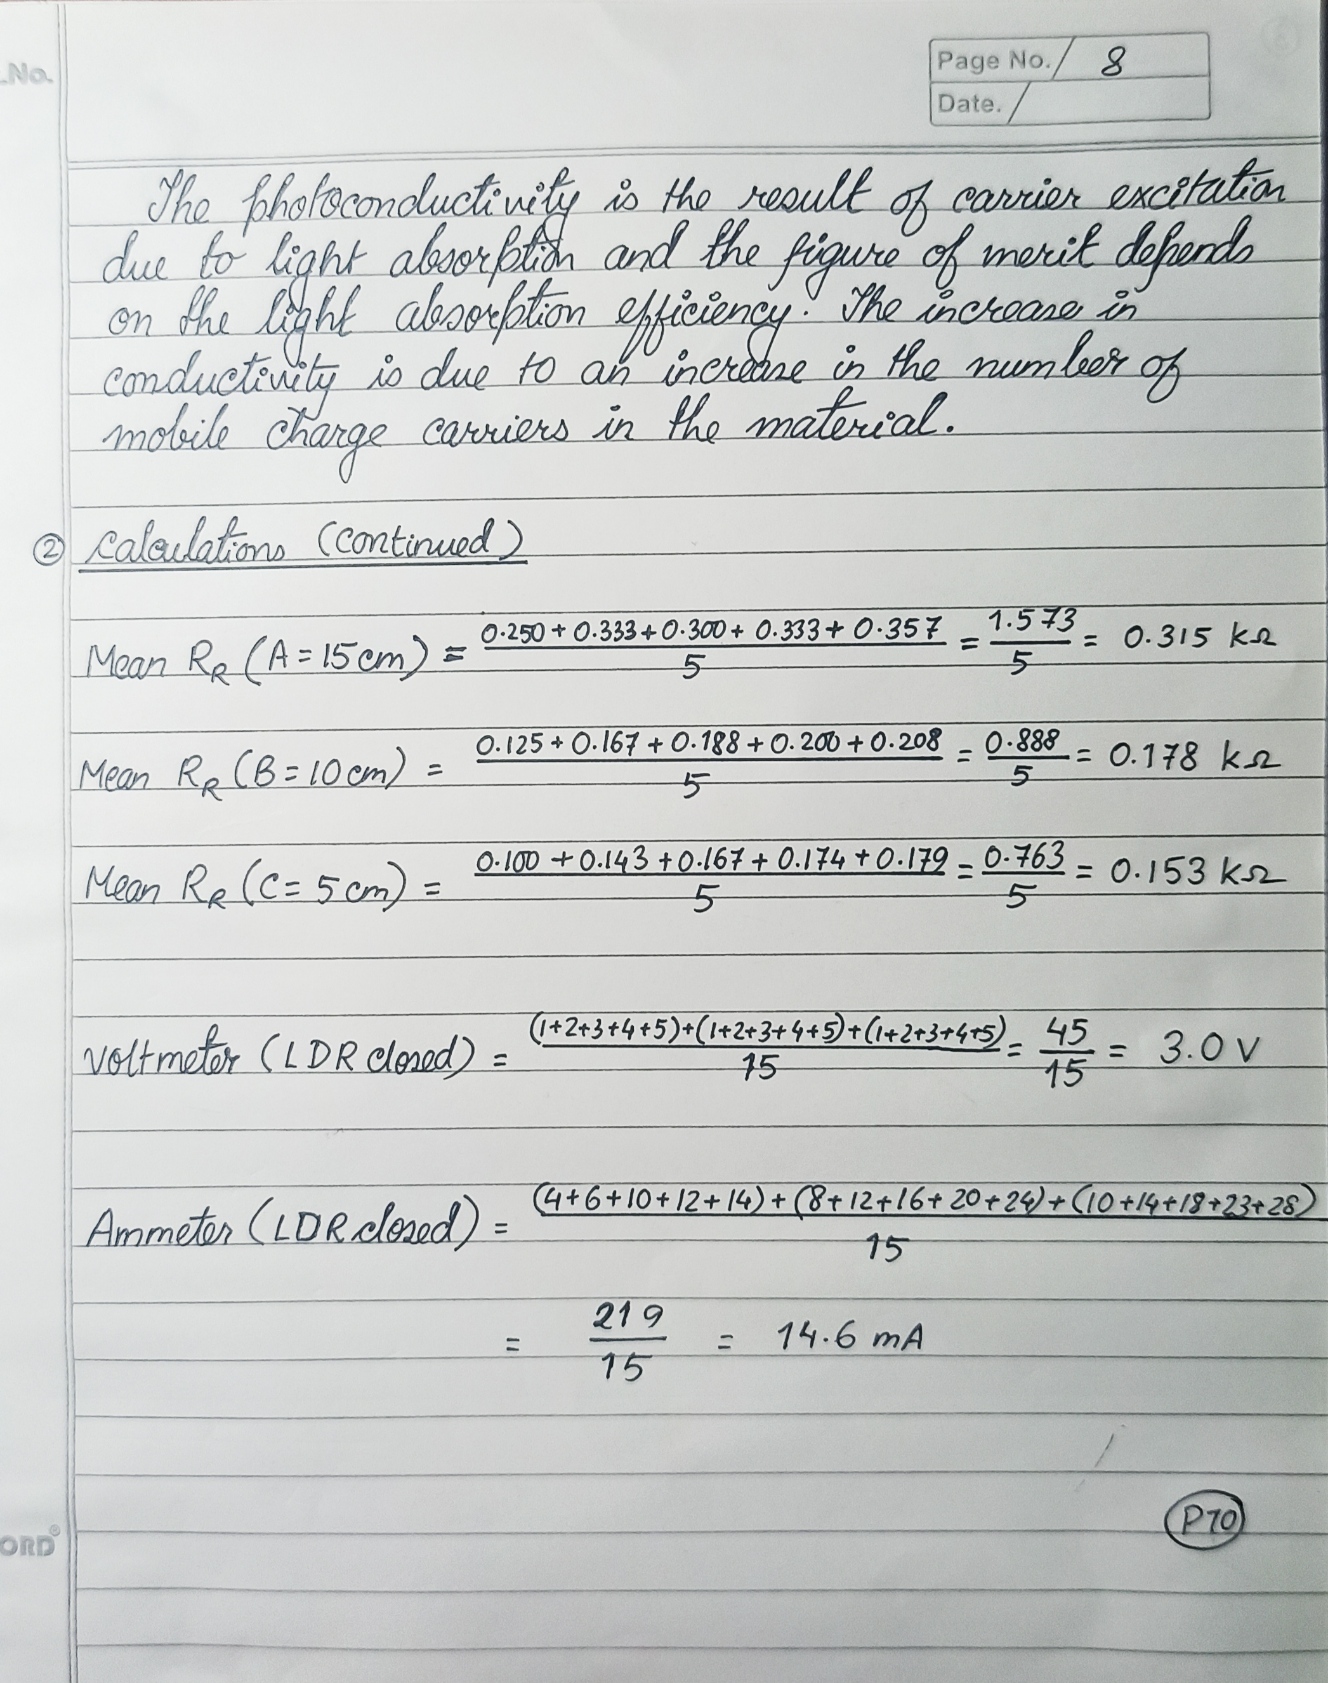 .No.
Page No. / 8
Date. /
The photoconductivity is the result of carrier excitation
due to light absorption and the figure of merit depends
on the light absorption efficiency. The increase in
conductivity is due to an increase in the number of
mobile charge carriers in the material.
② Calculations (continued)
Mean R_R (A = 15 cm) = (0.250 + 0.333 + 0.300 + 0.333 + 0.357)/5 = 1.573/5 = 0.315 kΩ
Mean R_R (B = 10 cm) = (0.125 + 0.167 + 0.188 + 0.200 + 0.208)/5 = 0.888/5 = 0.178 kΩ
Mean R_R (C = 5 cm) = (0.100 + 0.143 + 0.167 + 0.174 + 0.179)/5 = 0.763/5 = 0.153 kΩ
Voltmeter (LDR closed) = ((1+2+3+4+5)+(1+2+3+4+5)+(1+2+3+4+5))/15 = 45/15 = 3.0 V
Ammeter (LDR closed) = ((4+6+10+12+14)+(8+12+16+20+24)+(10+14+18+23+28))/15
= 219/15 = 14.6 mA
PTO
ORD®